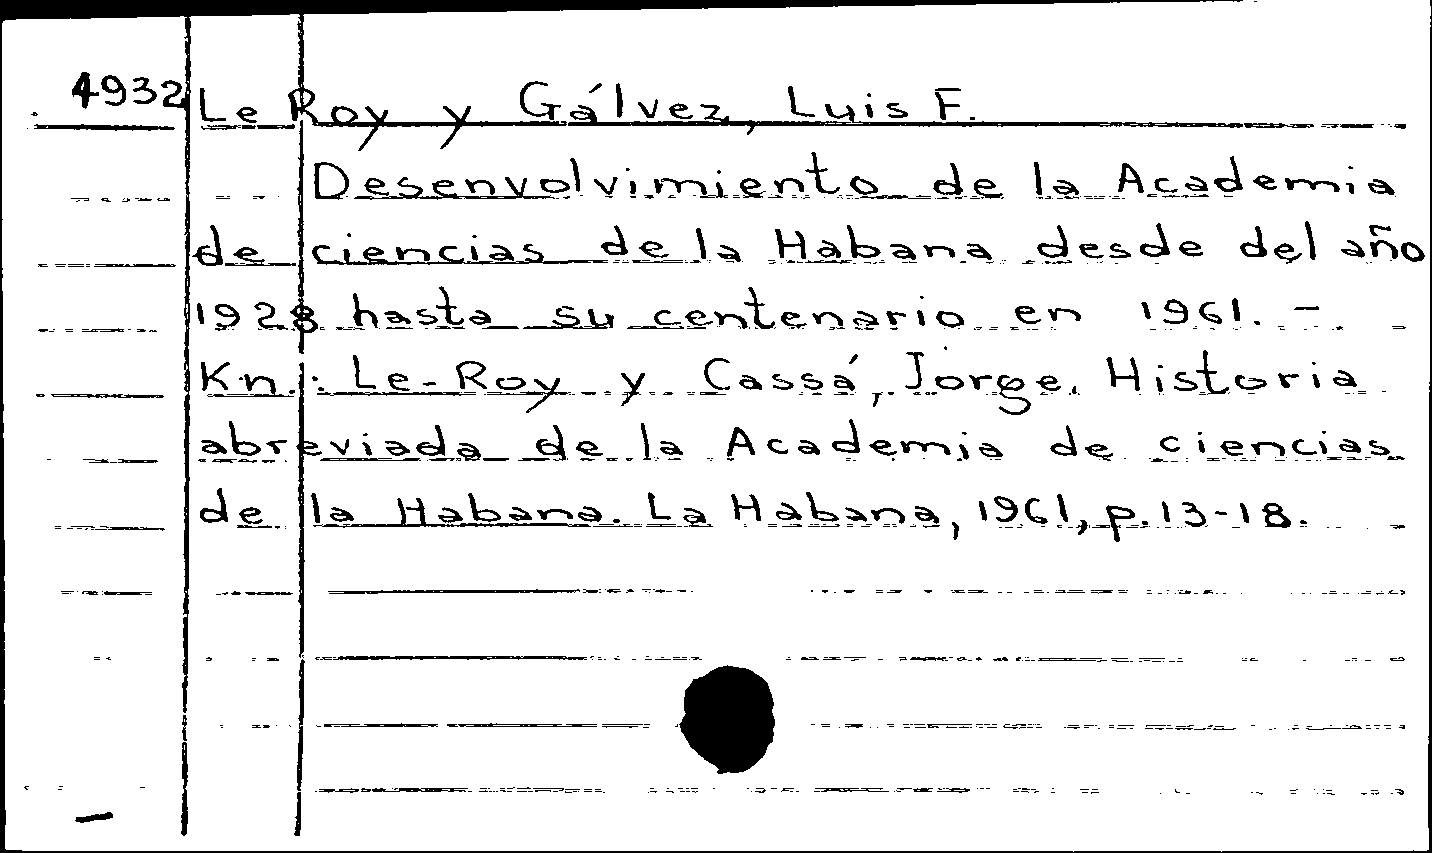 4932 Le Roy y Gálvez, Luis F.
Desenvolvimiento de la Academia
de ciencias de la Habana desde del año
1928 hasta su centenario en 1961. –
Kn.: Le-Roy y Cassá, Jorge. Historia
abreviada de la Academia de ciencias
de la Habana. La Habana, 1961, p. 13-18.